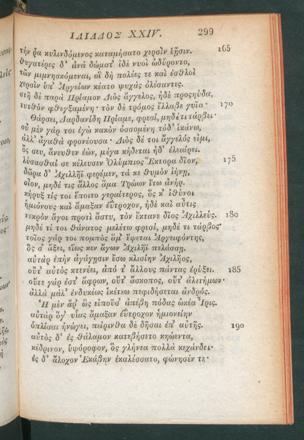 ΙΛΙΑΔΟΣ XXIV. 299
τήν ῥα κυλινδόμενος καταμήσατο χερσὶν ἑῇσιν. 165
θυγατέρες δ' ἀνὰ δώματ' ἰδὲ νυοὶ ὠδύροντο,
τῶν μιμνησκόμεναι, οἳ δὴ πολέες τε καὶ ἐσθλοὶ
χερσὶν ὑπ' Ἀργείων κέατο ψυχὰς ὀλέσαντες.
στῆ δὲ παρὰ Πρίαμον Διὸς ἄγγελος, ἠδὲ προσηύδα,
τυτθὸν φθεγξαμένη· τὸν δὲ τρόμος ἔλλαβε γυῖα· 170
Θάρσει, Δαρδανίδη Πρίαμε, φρεσὶ, μηδέ τι τάρβει·
οὐ μὲν γάρ τοι ἐγὼ κακὸν ὀσσομένη τόδ' ἱκάνω,
ἀλλ' ἀγαθὰ φρονέουσα· Διὸς δέ τοι ἄγγελός εἰμι,
ὅς σευ, ἄνευθεν ἐὼν, μέγα κήδεται ἠδ' ἐλεαίρει.
λύσασθαί σε κέλευσεν Ὀλύμπιος Ἕκτορα δῖον, 175
δῶρα δ' Ἀχιλλῆϊ φερέμεν, τά κε θυμὸν ἰήνῃ,
οἶον, μηδέ τις ἄλλος ἅμα Τρώων ἴτω ἀνήρ.
κήρυξ τίς τοι ἕποιτο γεραίτερος, ὅς κ' ἰθύνοι
ἡμιόνους καὶ ἄμαξαν ἐΰτροχον, ἠδὲ καὶ αὖτις
νεκρὸν ἄγοι προτὶ ἄστυ, τὸν ἔκτανε δῖος Ἀχιλλεύς. 180
μηδέ τί τοι θάνατος μελέτω φρεσὶ, μηδέ τι τάρβος·
τοῖος γάρ τοι πομπὸς ἅμ' ἕψεται Ἀργειφόντης,
ὅς σ' ἄξει, εἵως κεν ἄγων Ἀχιλῆϊ πελάσσῃ.
αὐτὰρ ἐπὴν ἀγάγῃσιν ἔσω κλισίην Ἀχιλῆος,
οὔτ' αὐτὸς κτενέει, ἀπό τ' ἄλλους πάντας ἐρύξει. 185
οὔτε γάρ ἐστ' ἄφρων, οὔτ' ἄσκοπος, οὔτ' ἀλιτήμων·
ἀλλὰ μάλ' ἐνδυκέως ἱκέτεω πεφιδήσεται ἀνδρός.
Ἡ μὲν ἄρ' ὣς εἰποῦσ' ἀπέβη πόδας ὠκέα Ἶρις.
αὐτὰρ ὅγ' υἷας ἄμαξαν ἐΰτροχον ἡμιονείην
ὁπλίσαι ἠνώγει, πείρινθα δὲ δῆσαι ἐπ' αὐτῆς. 190
αὐτὸς δ' ἐς θάλαμον κατεβήσετο κηώεντα,
κέδρινον, ὑψόροφον, ὃς γλήνεα πολλὰ κεχάνδει·
ἐς δ' ἄλοχον Ἑκάβην ἐκαλέσσατο, φώνησέν τε·